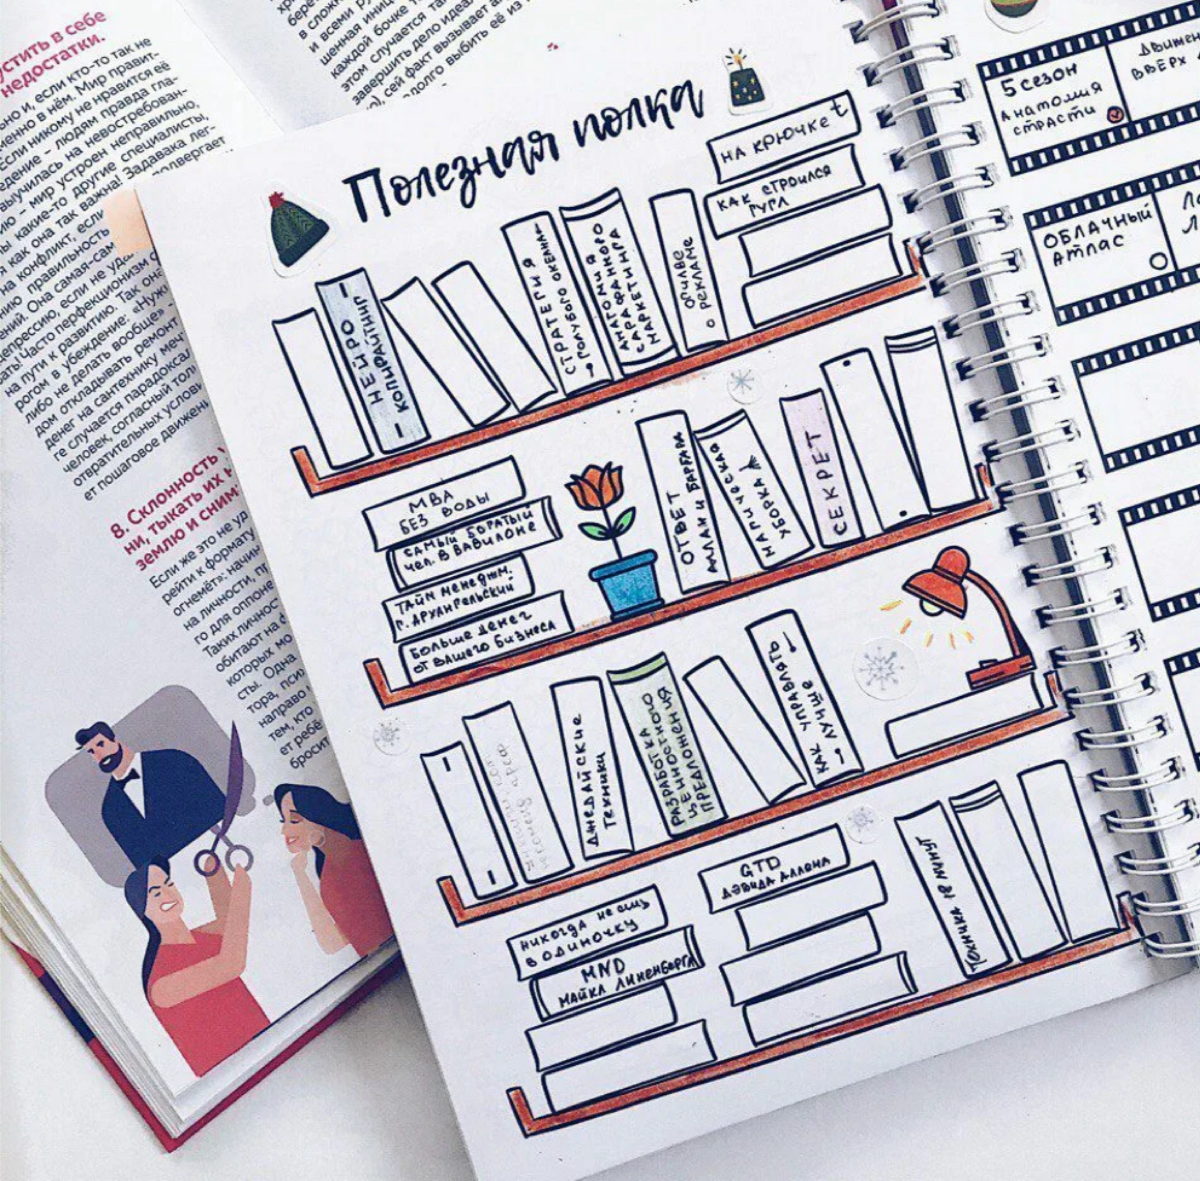 устить в себе
недостатки.
но и, если кто-то так не
менно в нём. Мир правит-
Если никому не нравится её
едение – людям правда гла-
выучилась на невостребован-
ию – мир устроен неправильно,
ны какие-то другие специалисты,
я как она так важна! Задавака лег-
на конфликт, если
нию правильность
ений. Она самая-сам
епрессию, если не уд
ать! Часто перфекционизм с
на пути к развитию. Так она
рогом в убеждение: «Нуж
либо не делать вообще»
дом откладывать ремонт
денег на сантехнику меч
ге случается парадоксал
человек, согласный тол
отвратительных услови
ет пошаговое движен
8. Склонность
ни, тыкать их
землю и сним
Если же это не уд
рейти к формату
огнемёт»: начин
на личности, п
го для оппоне
Таких личнос
обитают на
которых мо
сты. Одна
тора, пси
направо
тем, кто
ет ребё
бросит
в сложн
и всеми р
шенная иниц
каждой бочке
этом случается та
завершить дело идеа
), сей факт вызывает а
долго выбить её из
Полезная полка
НА КРЮЧКЕ
КАК СТРОИЛСЯ
ГУГЛ
НЕЙРО
КОПИРАЙТИНГ
СТРАТЕГИЯ
ГОЛУБОГО ОКЕАНА
АНАТОМИЯ
САРАФАННОГО
МАРКЕТИНГА
ОГИЛВИ
О РЕКЛАМЕ
МВА
БЕЗ ВОДЫ
САМЫЙ БОГАТЫЙ
ЧЕЛ. В ВАВИЛОНЕ
ТАЙМ МЕНЕДЖМ.
Г. АРХАНГЕЛЬСКИЙ
БОЛЬШЕ ДЕНЕГ
ОТ ВАШЕГО БИЗНЕСА
ОТВЕТ
АЛЛАН И БАРБАРА
МАГИЧЕСКАЯ
УБОРКА
СЕКРЕТ
ДЖЕДАЙСКИЕ
ТЕХНИКИ
РАЗРАБОТКА
ЦЕННОСТНОГО
ПРЕДЛОЖЕНИЯ
КАК УПРАВЛЯТЬ
ЛУЧШЕ
НИКОГДА НЕ ЕШЬ
В ОДИНОЧКУ
MND
МАЙКЛ ЛИНЕНБЕРГЕР
GTD
ДЭВИДА АЛЛЕНА
ТЕХНИКА 18 МИНУТ
5 СЕЗОН
АНАТОМИЯ
СТРАСТИ
ДВИЖЕН
ВВЕРХ
ОБЛАЧНЫЙ
АТЛАС